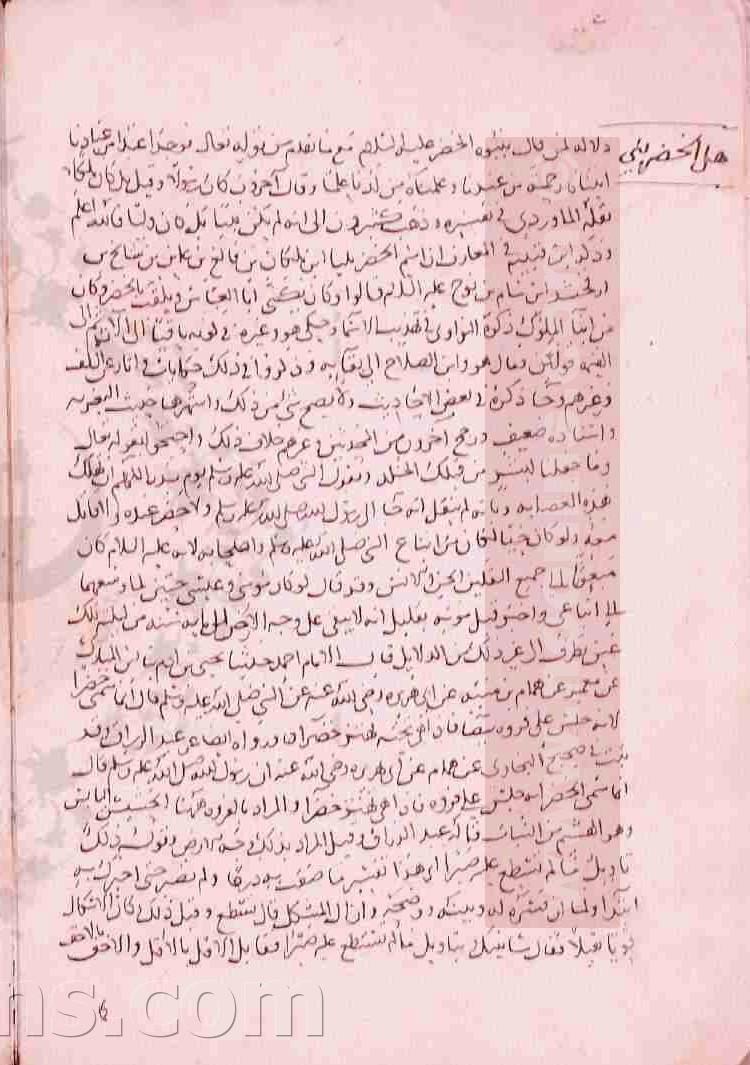 هل الخضر نبي
دلالة لمن قال بنبوة الخضر عليه السلام مع ما تقدم من قوله تعالى فوجدا عبدا من عبادنا
اتيناه رحمة من عندنا وعلمناه من لدنا علما وقال آخرون كان رسولا وقيل بل كان ملكا
نقله الماوردي في تفسيره وذهب كثيرون الى انه لم يكن نبيا بل كان وليا فالله اعلم
وذكر ابن قتيبة في المعارف ان اسم الخضر بليا ابن ملكان بن فالغ بن عابر بن شالخ بن
ارفخشد ابن سام بن نوح عليه السلام قالوا وكان يكنى ابا العباس ويلقب بالخضر وكان
من ابنا الملوك ذكره النواوي في تهذيب الاسما وحكى هو وغيره في كونه باقيا الى الآن ثم الى
القيمة قولين ومال هو وابن الصلاح الى بقايه وذكروا في ذلك حكايات في آثار عن السلف
وغيرهم وجا ذكره في بعض الاحاديث ولا يصح شي من ذلك واشهرها حديث التعزية
واسناده ضعيف ورجح آخرون من المحدثين وغيرهم خلاف ذلك واحتجوا بقوله تعالى
وما جعلنا لبشر من قبلك الخلد وبقول النبي صلى الله عليه وسلم يوم بدر اللهم ان تهلك
هذه العصابة وبانه لم ينقل انه جا الى رسول الله صلى الله عليه وسلم ولا حضر عنده ولا قاتل
معه ولو كان حيا لكان من اتباع النبي صلى الله عليه وسلم واصحابه لانه عليه السلام كان
مبعوثا الى جميع الثقلين الجن والانس وقد قال لو كان موسى وعيسى حيين لما وسعهما
الا اتباعي واخبر قبل موته بقليل انه لا يبقى على وجه الارض الى ماية سنة من ليلته تلك
عين تطرف الى غير ذلك من الدلايل قال الامام احمد حدثنا يحيى بن ادم ثنا ابن المبارك
عن معمر عن همام بن منبه عن ابي هريرة رضي الله عنه عن النبي صلى الله عليه وسلم قال انما سمي خضرا
لانه جلس على فروة بيضا فاذا هي تحته تهتز خضرا ورواه ايضا عن عبد الرزاق وقد
ثبت في صحيح البخاري عن همام عن ابي هريرة رضي الله عنه ان رسول الله صلى الله عليه وسلم قال
انما سمي الخضر لانه جلس على فروة فاذا هي تهتز خضرا والمراد بالفروة ههنا الحشيش اليابس
وهو الهشيم من النبات قاله عبد الرزاق وقيل المراد بذلك وجه الارض وقوله ذلك
تاويل ما لم تسطع عليه صبرا اي هذا تفسير ما ضقت به ذرعا ولم تصبر حتى اخبرك به
ابتدا ولما ان فسره له وبينه ووضحه وازال المشكل قال تسطع وقبل ذلك كان الاشكال
قويا ثقيلا فقال سانبئك بتاويل ما لم تستطع عليه صبرا فقابل الاثقل بالاثقل والاخف بالاخف
ns.com